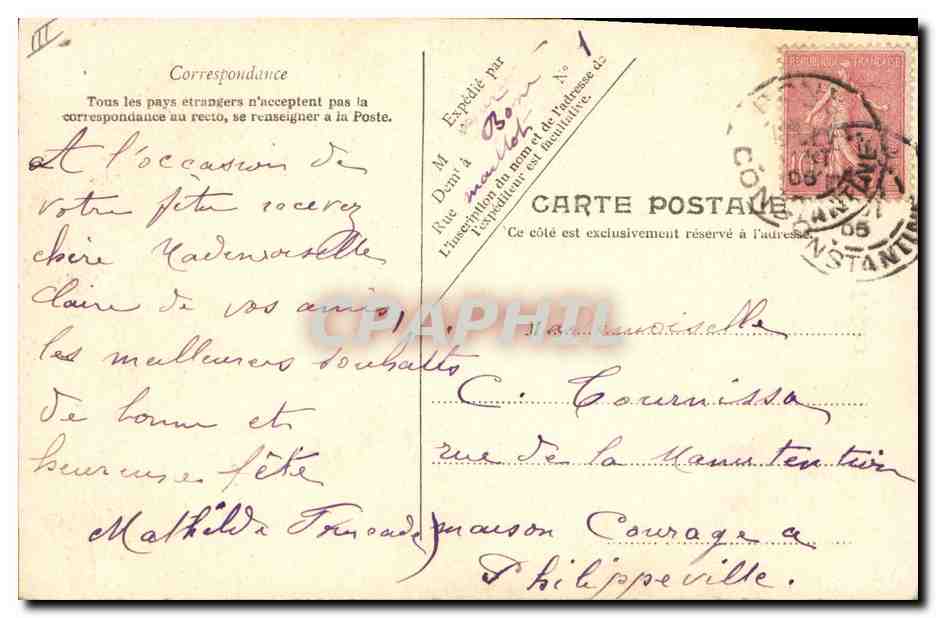 III
Correspondance
Tous les pays étrangers n'acceptent pas la
correspondance au recto, se renseigner à la Poste.
A l'occasion de
votre fête recevez
chère Mademoiselle
Claire de vos amis,
les meilleurs souhaits
de bonne et
heureuse fête
Mathilde
Expédié par
M
Demt à Bone
Rue maillot No 1
L'inscription du nom et de l'adresse de
l'expéditeur est facultative.
REPUBLIQUE FRANÇAISE
10
CONSTANTINE
05
CONSTANTINE
CARTE POSTALE
Ce côté est exclusivement réservé à l'adresse.
CPAPHIL
Mademoiselle
C. Tournissa
rue de la Manutention
maison Courage a
Philippeville.